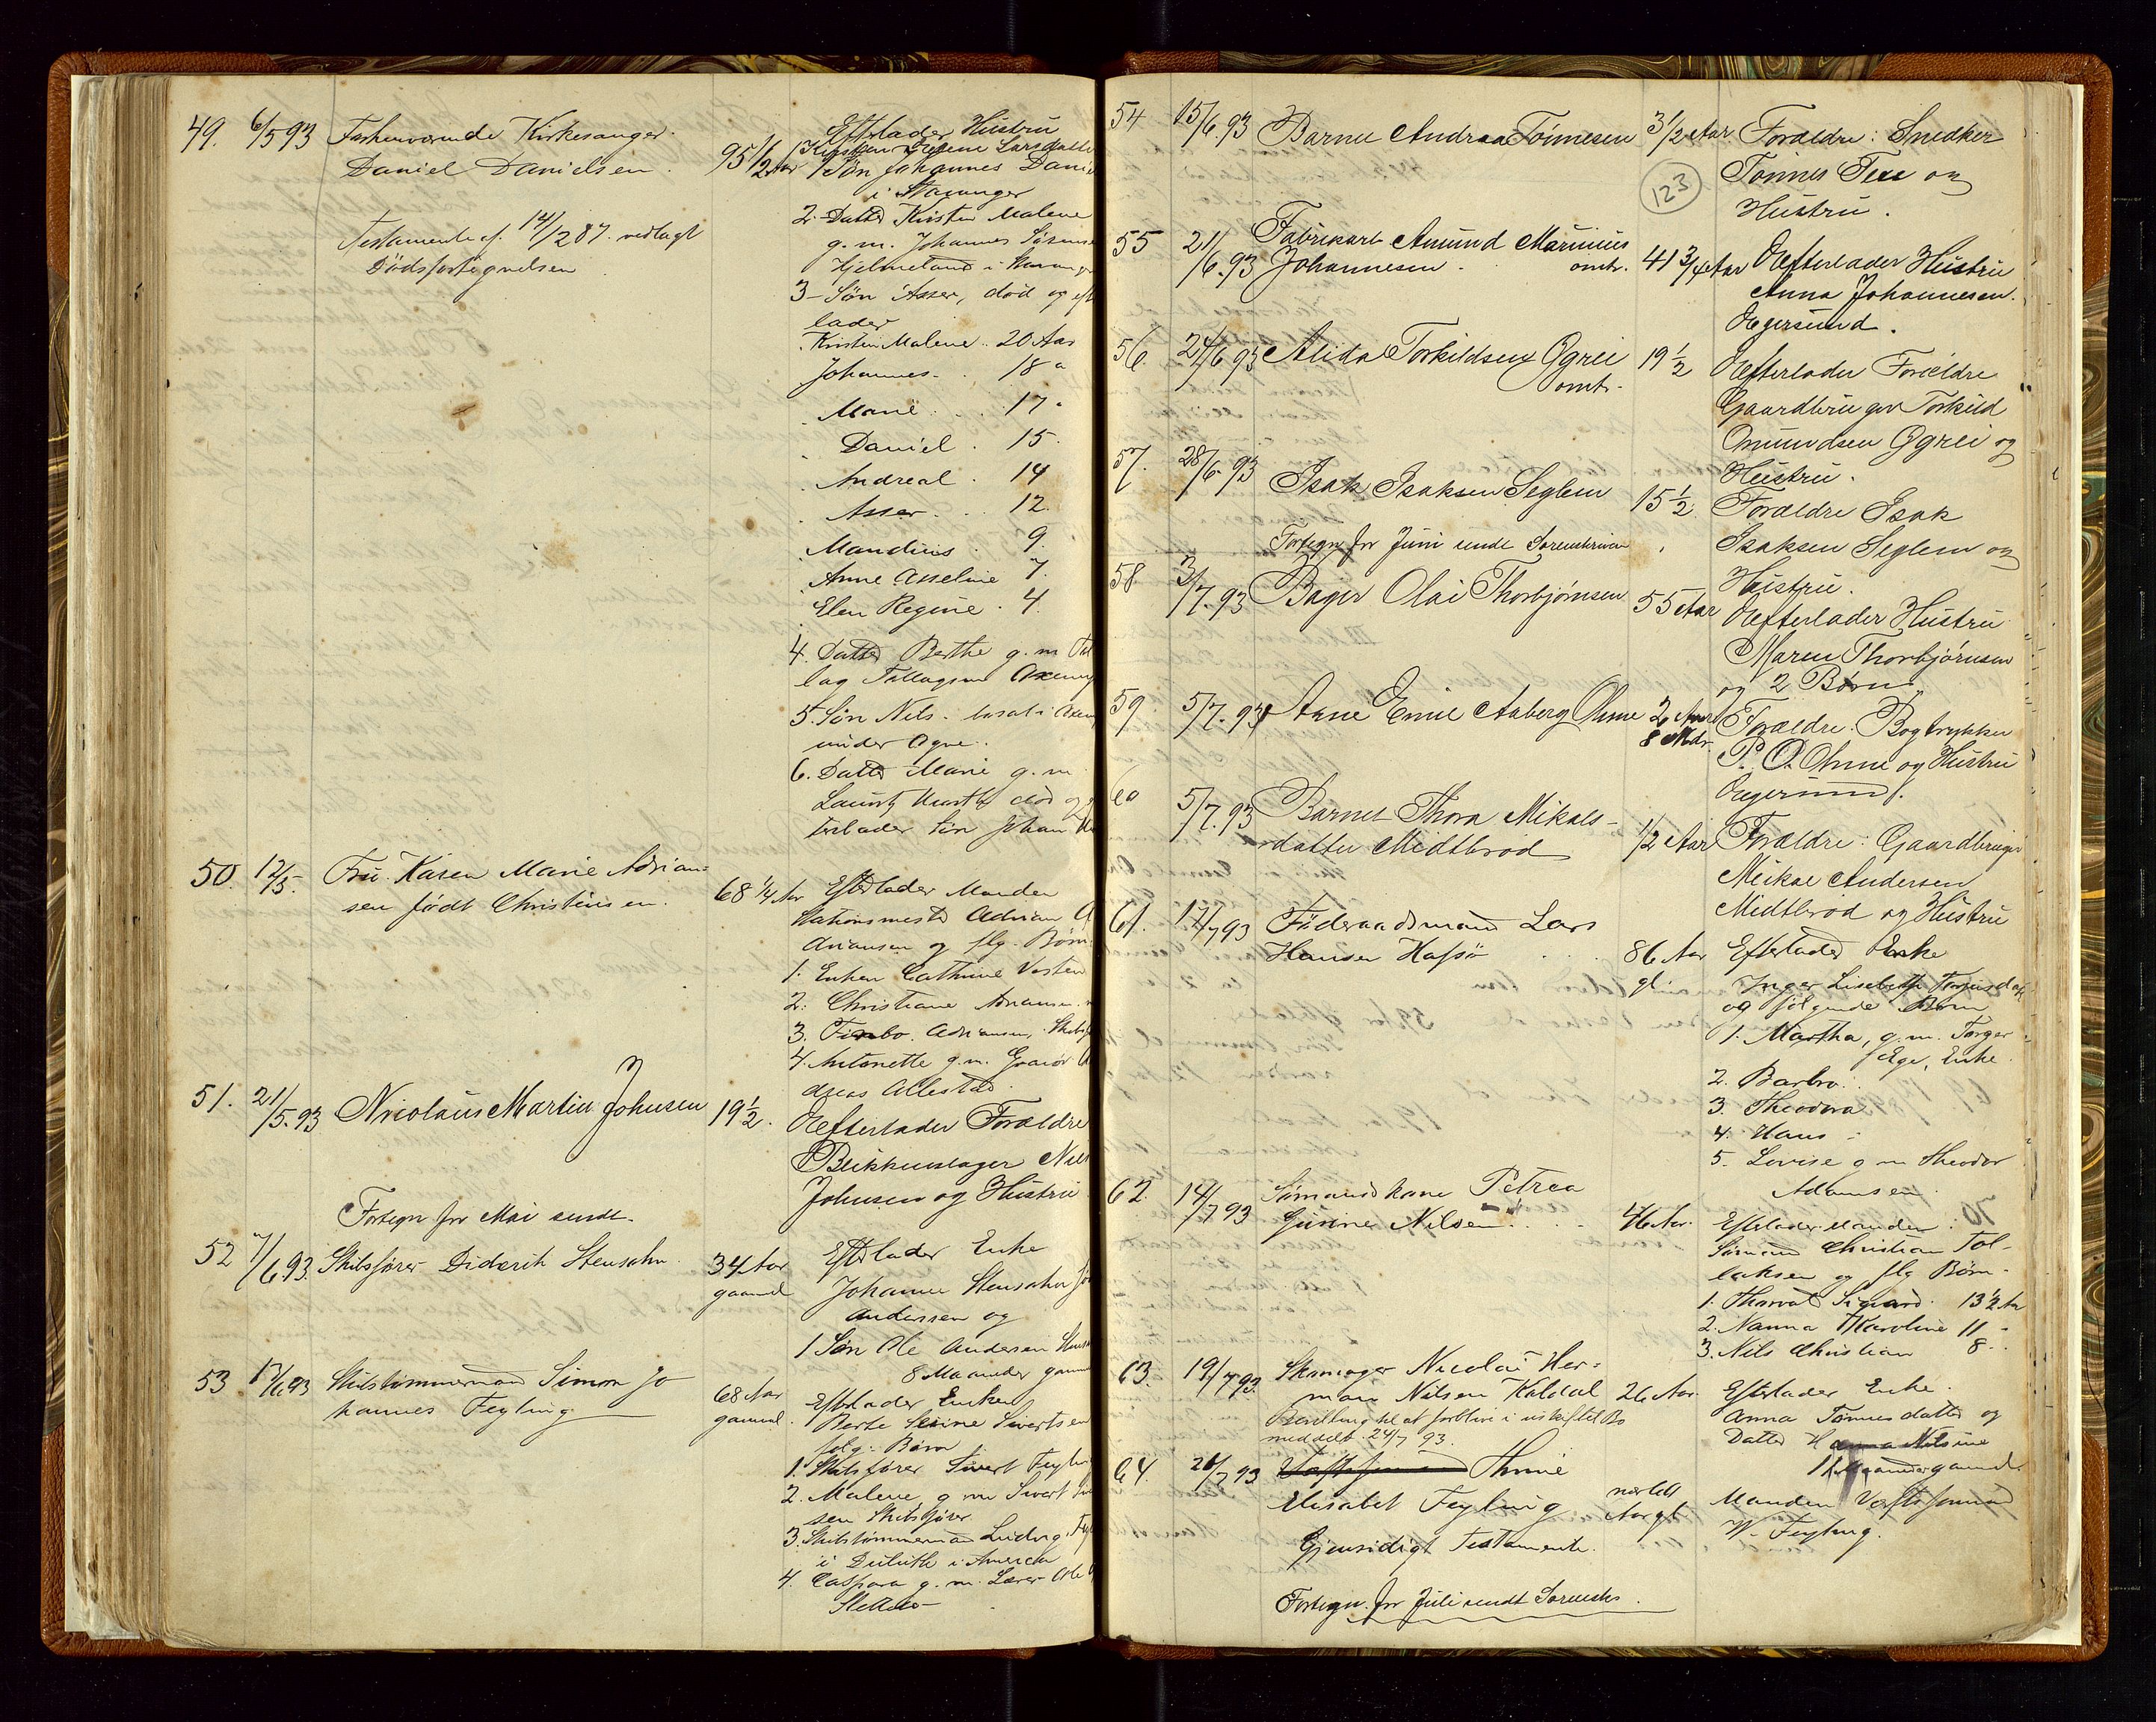 49. 6/5 93 Forhenværende Kirkesanger
Daniel Danielsen. 95 1/2 Aar
Testamente af 14/2 87. vedlagt
Dødsfortegnelsen
Efterlader Hustru
Larsdatter
1 Søn Johannes Dani
i Stavanger
2. Datter Kirsten Malene
g. m. Johannes
Hjelmeland i
3- Søn Asser, død og ef
lader
Kirsten Malene .. 20 Aar
Johannes. . 18 "
Marie . . . 17 "
Daniel . 15.
Andreal . 14
Asser. . . 12.
Mandius . 9.
Anne Asseline 7.
Elen Regine . 4.
4. Datter Berthe g. m. Tol
lag Tollagsen
5. Søn Nils. bosat i
under Ogne..
6. Datter Marie g. m.
død og
terlader Søn Johan
50. 12/5. Fru Karen Marie Adrian-
sen født Christensen. 68 1/4 Aar
Efterlader Manden
Stationsmester Adrian A
driansen og flg. Børn.
1. Enken Cathrine
2. Christiane
3. Adriansen,
4. Antonette g. m.
dreas Allestad.
51. 21/5. 93 Nicolaus Martin Johnsen 19 1/2.
Efterlader Forældre
Blikkenslager Niel
Johnsen og Hustru
Fortegn. for Mai sendt.
52 7/6 93. Skibsfører Diderik Stensohn. 34 Aar
gammel
Efterlader Enke
Johanne Stensohn fø
Andersen og
1 Søn Ole Andersen
8 Maaneder gamme
53 17/6 93 Skibstømmermand Simon Jo
hannes Feyling 68 Aar
gammel.
Efterlader Enken
Berte Serine Sivertsen
følg. Børn
1. Skibsfører Sivert Feyli
2. Malene g. m. Sivert
sen Skibsfører
3. Skibstømmermand Ludvig Fey
i Duluth i America
4. Caspara g. m. Lærer Ole

54 15/6. 93 Barnet Andrea Tønnesen 3 1/2 Aar. Forældre: Snedker
Tønnes Tee og
Hustru.
123
55 21/6. 93 Fabrikarb. Amund Marinius
Johannesen. omtr. 41 3/4 Aar Efterlader Hustru
Anna Johannesen.
Egersund.
56. 24/6 93 Alida Torkildsen Ogrei
omtr. 19 1/2 Efterlader Forældre
Gaardbruger Torkild
Omundsen Ogrei og
Hustru.
57. 28/6 93 Isak Isaksen Seglem 15 1/2. Forældre Isak
Isaksen Seglem og
Hustru.
Fortegn for Juni sendt Sorenskriver
58. 3/7. 93 Bager Olai Thorbjørnsen 55 Aar Efterlader Hustru
Maren Thorbjørnsen
og 2 Børn.
59. 5/7. 93 Arne Emil Aaberg Ohme 2 Aar
8 Mdr. Forældre. Bogtrykker
P. O. Ohme og Hustru
Egersund.
60 5/7. 93 Barnet Thora Mikals-
datter Midtbrød 1/2 Aar Forældre: Gaardbruger
Mikal Andersen
Midtbrød og Hustru
61. 12/7 93 Føderaadsmand Lars
Hansen Hafsø . . . 86 Aar
gl. Efterlader Enke
Inger Lisebeth
og følgende Børn
1. Martha, g. m. Torger
Ege, Enke.
2. Barbro.
3. Theodora
4. Hans -
5. Lovise g m Theodor
Adamsen.
62. 14/7 93 Sømandskone Petrea
Gurine Nilsen . . . 46 Aar. Efterlader Manden:
Sømand Christian Tol-
laksen og flg Børn.
1. Thorvald Sigvard 13 1/2 Aar
2. Nanna Karoline 11 -
3. Nils Christian 8 -
63. 19/7 93. Skomager Nicolai Her-
man Nilsen Koldal 26 Aar. Efterlader Enke.
Anna Tønnesdatter og
Datter
gammel.
Bevilling til at forblive i uskiftet Bo
meddelt 24/7 93.
64. 26/7 93 Thrine
Elisabet Feyling
Aar gl. Manden
W. Feyling.
Gjensidigt Testamente.
Fortegn. for Juli sendt Sorenskr.